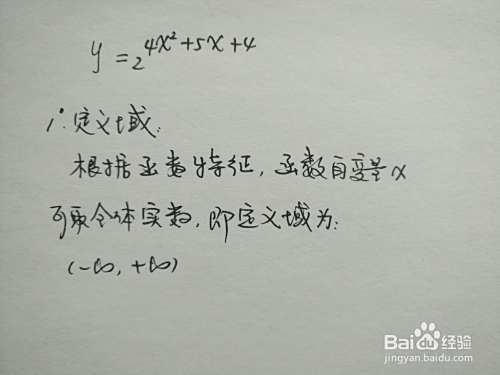 y = 2^{4x²+5x+4}
1°.定义域:
根据函数特征,函数自变量x
可取全体实数,即定义域为:
(-∞,+∞)
Baidu经验
jingyan.baidu.com